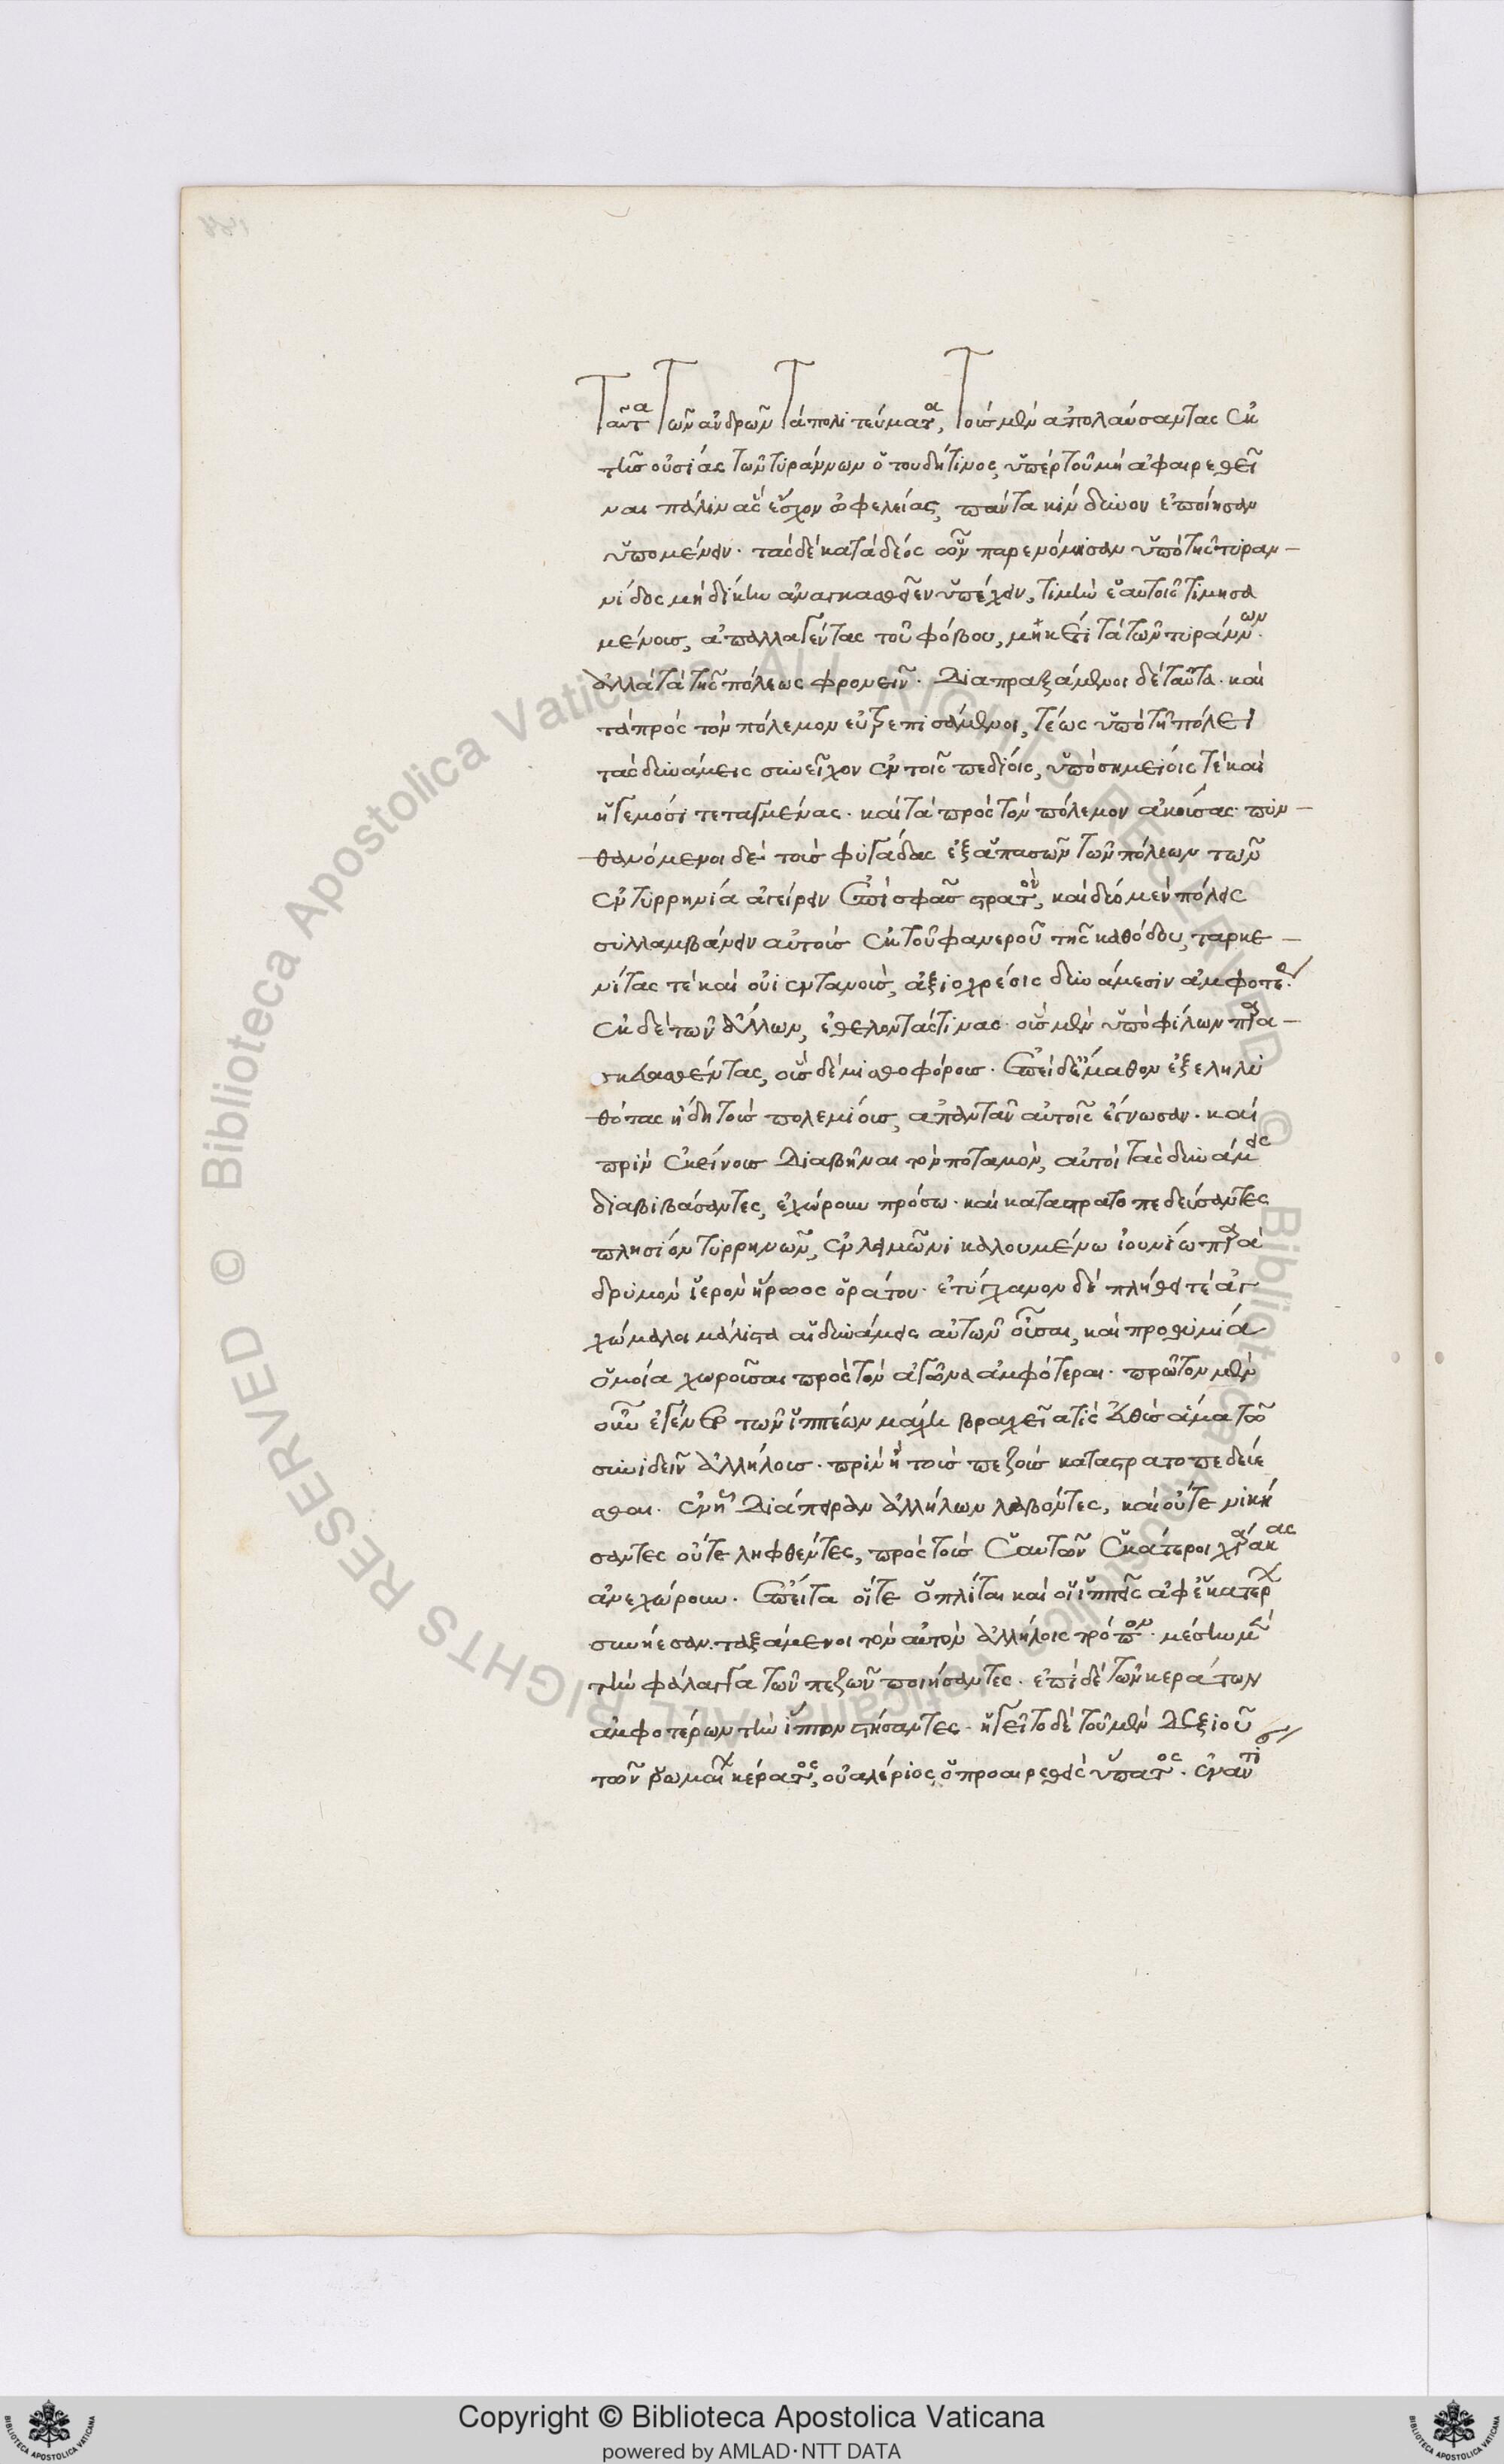 ταῦτα τῶν ἀνδρῶν τὰ πολιτεύματα, τοὺς μὲν ἀπολαύσαντας ἐκ
τῆς οὐσίας τῶν τυράννων ὅτου δήτινος, ὑπὲρ τοῦ μὴ ἀφαιρεθεῖ
ναι πάλιν ἃς ἔσχον ὠφελείας, πάντα κίνδυνον ἐποίησαν
ὑπομένειν· τὰς δὲ κατὰ δέος ὧν παρενόμησαν ὑπὸ τῆς τυραν-
νίδος μὴ δίκην ἀναγκασθῶσιν ὑπέχειν, τιμὴν ἑαυτοῖς τιμησα
μένους, ἀπαλλαγέντας τοῦ φόβου, μηκέτι τὰ τῶν τυράννων·
ἀλλὰ τὰ τῆς πόλεως φρονεῖν· Διαπραξάμενοι δὲ ταῦτα· καὶ
τὰ πρὸς τὸν πόλεμον εὐτρεπισάμενοι, τέως ὑπὸ τῇ πόλει
τὰς δυνάμεις συνεῖχον ἐν τοῖς πεδίοις, ὑπὸ σημείοις τὲ καὶ
ἡγεμόσι τεταγμένας· καὶ τὰ πρὸς τὸν πόλεμον ἀκούσας· πυν-
θανόμενοι δὲ τοὺς φυγάδας ἐξ ἁπασῶν τῶν πόλεων τῶν
ἐν τυρρηνία ἀγείρειν ἐπὶ σφᾶς στρατὸν, καὶ δύο μὲν πόλεις
συλλαμβάνειν αὐτοῖς ἐκ τοῦ φανεροῦ τῆς καθόδου, ταρκυ-
νίτας τὲ καὶ οὐιεντανοὺς, ἀξιοχρέοις δυνάμεσιν ἀμφοτέ·
ἐκ δὲ τῶν ἄλλων, ἐθελοντάς τινας· οὓς μὲν ὑπὸ φίλων πα-
ρασκευασθέντας, οὓς δὲ μισθοφόρους· ἐπεὶ δὲ ἔμαθον ἐξεληλυ
θότας ἤδη τοὺς πολεμίους, ἀπαντᾶν αὐτοῖς ἔγνωσαν· καὶ
πρὶν ἐκείνους Διαβῆναι τὸν ποταμὸν, αὐτοὶ τὰς δυνάμεις
διαβιβάσαντες, ἐχώρουν πρόσω· καὶ καταστρατοπεδεύσαντες
πλησίον τυρρηνῶν, ἐν λειμῶνι καλουμένω ἰουνίω παρὰ
δρυμὸν ἱερὸν ἥρωος ὁράτου· ἐτύγχανον δὲ πλήθει τὲ ἀγ
χώμαλοι μάλιστα αἱ δυνάμεις αὐτῶν οὖσαι, καὶ προθυμία
ὁμοία χωροῦσαι πρὸς τὸν ἀγῶνα ἀμφότεραι· πρῶτον μὲν
οὖν ἐγένετο τῶν ἱππέων μάχη βραχεῖά τις εὐθὺς ἅμα τῶ
συνιδεῖν ἀλλήλους· πρὶν ἢ τοὺς πεζοὺς καταστρατοπεδεύε
σθαι· ἐν ᾗ Διάπειραν ἀλλήλων λαβόντες, καὶ οὔτε νική
σαντες οὔτε ληφθέντες, πρὸς τοὺς ἑαυτῶν ἑκάτεροι χάρακας
ἀνεχώρουν· ἔπειτα οἵτε ὁπλῖται καὶ οἱ ἱππεῖς ἀφ' ἑκατέρων
συνήεσαν· ταξάμενοι τὸν αὐτὸν ἀλλήλοις τρόπον· μέσην μὲν
τὴν φάλαγγα τῶν πεζῶν ποιήσαντες· ἐπὶ δὲ τῶν κεράτων
ἀμφοτέρων τὴν ἵππον στήσαντες· ἡγεῖτο δὲ τοῦ μὲν Δεξιοῦ
τῶν ῥωμαίων κέρατος, οὐαλέριος ὁ προαιρεθεὶς ὕπατος· ἐναντί